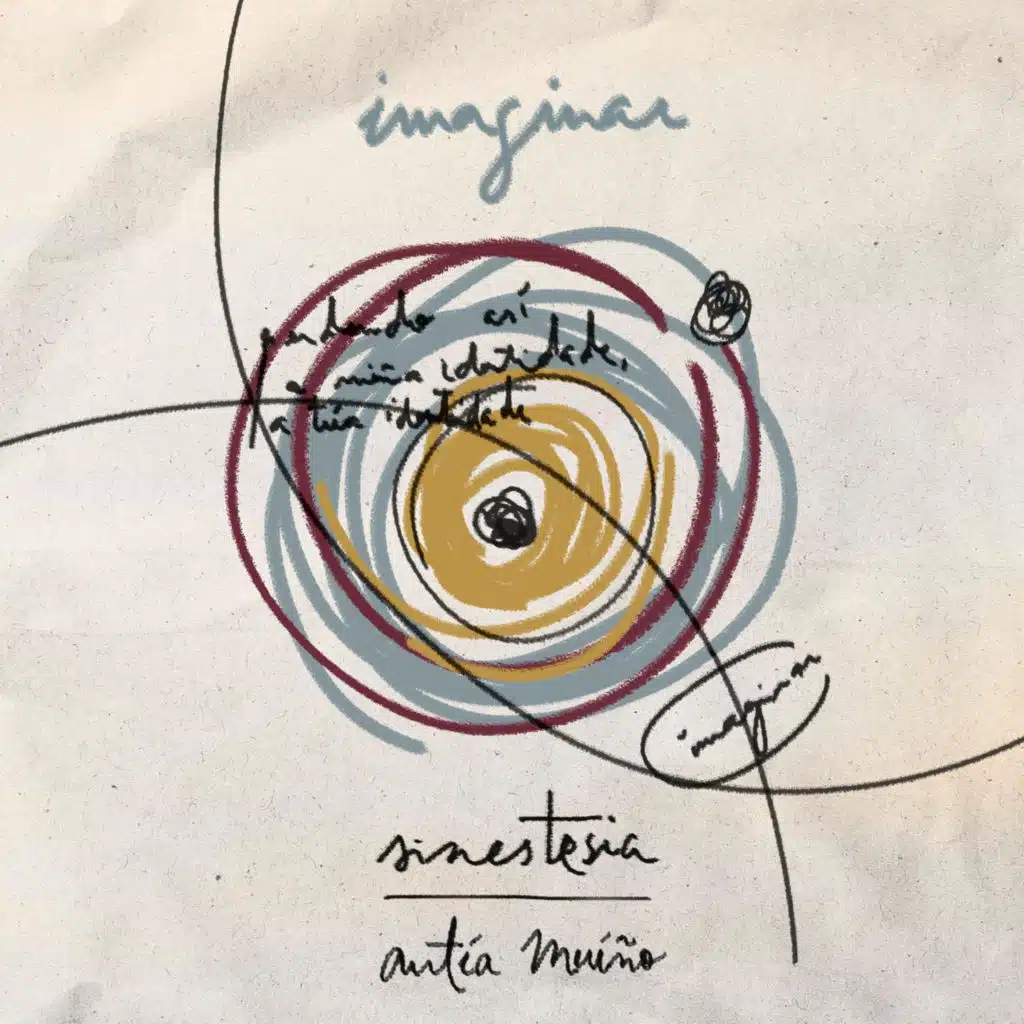 imaginar
perdendo así
a miña identidade,
a túa identidade
imaginar
sinestesia
antía muíño